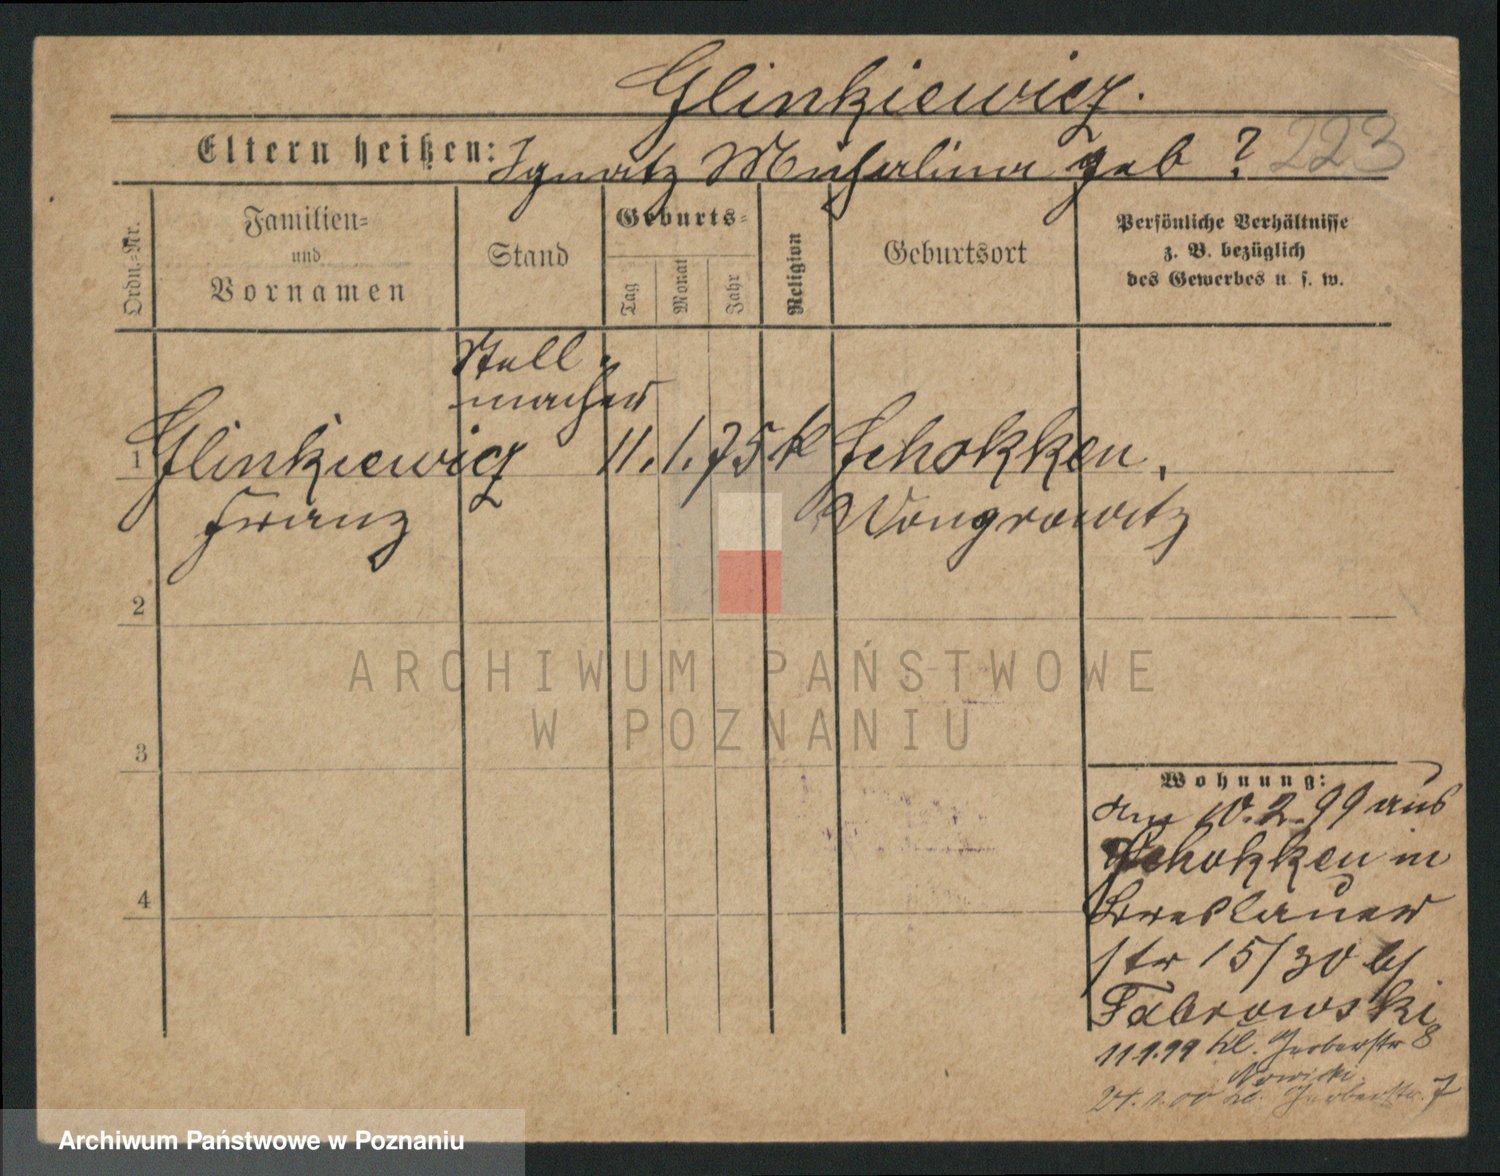 Glinkiewicz.
Eltern heißen: Ignatz Michalina geb ? 223
Ordn.-Nr.
Familien-
und
Vornamen
Stand
Geburts-
Tag
Monat
Jahr
Religion
Geburtsort
Persönliche Verhältnisse
z. B. bezüglich
des Gewerbes u. s. w.
Stell-
macher
1 Glinkiewicz 11. 1. 75 k Schokken,
Franz Wongrowitz
2
ARCHIWUM PAŃSTWOWE
W POZNANIU
3
Wohnung:
10.2.99 aus
Schokken in
Breslauer
str 15/30 b/
Fabrowski
11.9.99 kl. Gerberstr 8
Nowicki
24. 1. 00 kl. Gerberstr. 7
4
Archiwum Państwowe w Poznaniu